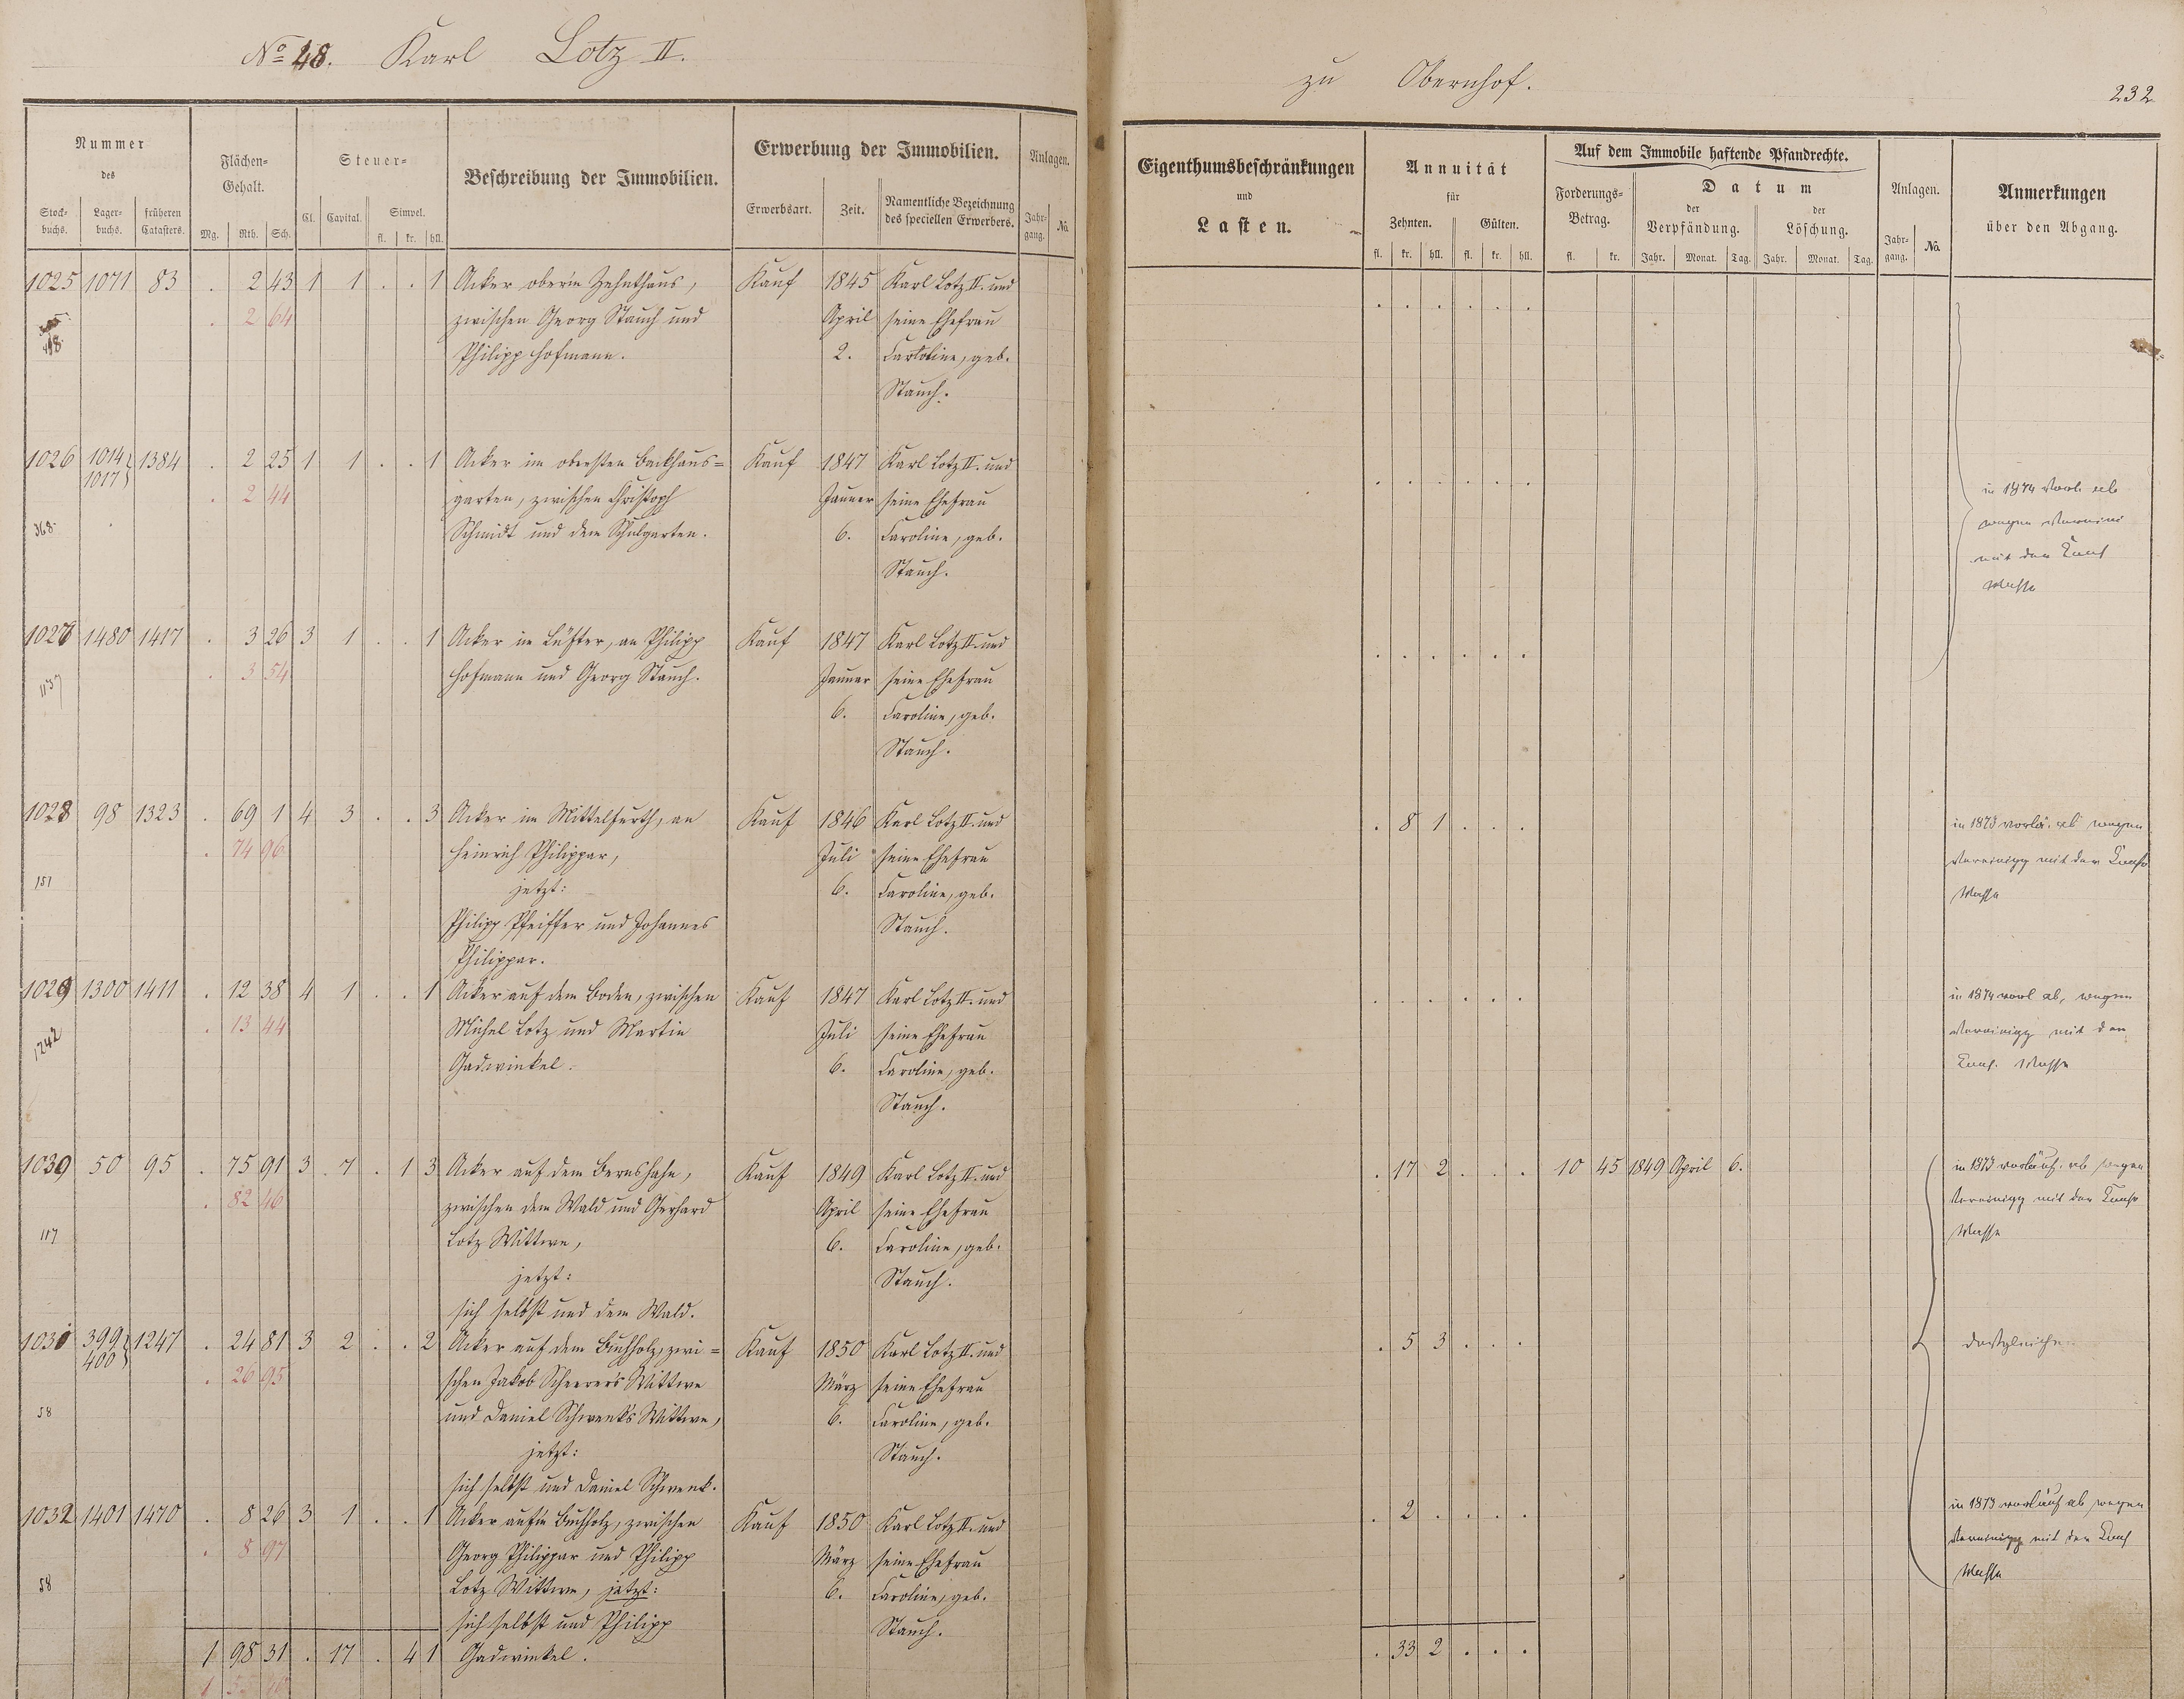 No 48. Karl Lotz II.
zu Obernhof.
232
Nummer
des
Stock-
buchs.
Lager-
buchs.
früheren
Catasters.
Flächen-
Gehalt.
Mg. Rth. Sch.
Steuer-
Cl. Capital. Simpel.
fl. kr. hll.
Beschreibung der Immobilien.
Erwerbung der Immobilien.
Erwerbsart. Zeit. Namentliche Bezeichnung
des speciellen Erwerbers.
Anlagen.
Jahr-
gang. No.
Eigenthumsbeschränkungen
und
Lasten.
Annuität
für
Zehnten. Gülten.
fl. kr. hll. fl. kr. hll.
Auf dem Immobile haftende Pfandrechte.
Forderungs-
Betrag.
fl. kr.
Datum
der
Verpfändung.
der
Löschung.
Jahr. Monat. Tag. Jahr. Monat. Tag.
Anlagen.
Jahr-
gang. No.
Anmerkungen
über den Abgang.
1025 1071 83 . 2 43 1 1 . . 1 Acker oberm Zehnthaus, Kauf 1845 Karl Lotz II. und
. 2 64 zwischen Georg Stauch und April seine Ehefrau
Philipp Hofmann. 2. Caroline, geb.
Stauch.
1026 1014 1017 1384 . 2 25 1 1 . . 1 Acker im obersten Backhaus- Kauf 1847 Karl Lotz II. und
. 2 44 garten, zwischen Christoph Januar seine Ehefrau
368 Schmidt und dem Schulgarten. 6. Caroline, geb.
Stauch.
in 1874 vorl. ab
wegen
mit der Cons
Masse
1027 1480 1417 . 3 26 3 1 . . 1 Acker im Lüster, an Philipp Kauf 1847 Karl Lotz II. und
. 3 54 Hofmann und Georg Stauch. Januar seine Ehefrau
1137 6. Caroline, geb.
Stauch.
1028 98 1323 . 69 1 4 3 . . 3 Acker im Mittelfurth, an Kauf 1846 Karl Lotz II. und . 8 1 . . . in 1873 vorlä. ab wegen
. 74 96 Heinrich Philippar, Juli seine Ehefrau Vereinigg mit der Cons
151 jetzt: 6. Caroline, geb. Masse
Philipp Pfeiffer und Johannes Stauch.
Philippar.
1029 1300 1411 . 12 38 4 1 . . 1 Acker auf dem Boden, zwischen Kauf 1847 Karl Lotz II. und in 1874 vorl ab, wegen
. 13 44 Michel Lotz und Martin Juli seine Ehefrau Vereinigg mit der
1242 Gadwinkel. 6. Caroline, geb. Cons. Masse
Stauch.
1030 50 95 . 75 91 3 7 . 1 3 Acker auf dem Bernshahn, Kauf 1849 Karl Lotz II. und . 17 2 . . . 10 45 1849 April 6. in 1873 vorläuf. ab wegen
. 82 46 zwischen dem Wald und Gerhard April seine Ehefrau Vereinigg mit der Cons
117 Lotz Wittwe, 6. Caroline, geb. Masse
jetzt: Stauch.
sich selbst und dem Wald.
1031 399 400 1247 . 24 81 3 2 . . 2 Acker auf dem Buchholz, zwi- Kauf 1850 Karl Lotz II. und . 5 3 . . . desgleichen
. 26 95 schen Jakob Scheerer's Wittwe März seine Ehefrau
58 und Daniel Schwenk's Wittwe, 6. Caroline, geb.
jetzt: Stauch.
sich selbst und Daniel Schwenk.
1032 1401 1470 . 8 26 3 1 . . 1 Acker auf'm Buchholz, zwischen Kauf 1850 Karl Lotz II. und . 2 . . . . in 1873 vorläuf ab wegen
. 8 97 Georg Philippar und Philipp März seine Ehefrau Vereinigg mit der Cons
58 Lotz Wittwe, jetzt: 6. Caroline, geb. Masse
sich selbst und Philipp Stauch.
1 98 31 . 17 . 4 1 Gadwinkel. . 33 2 . . .